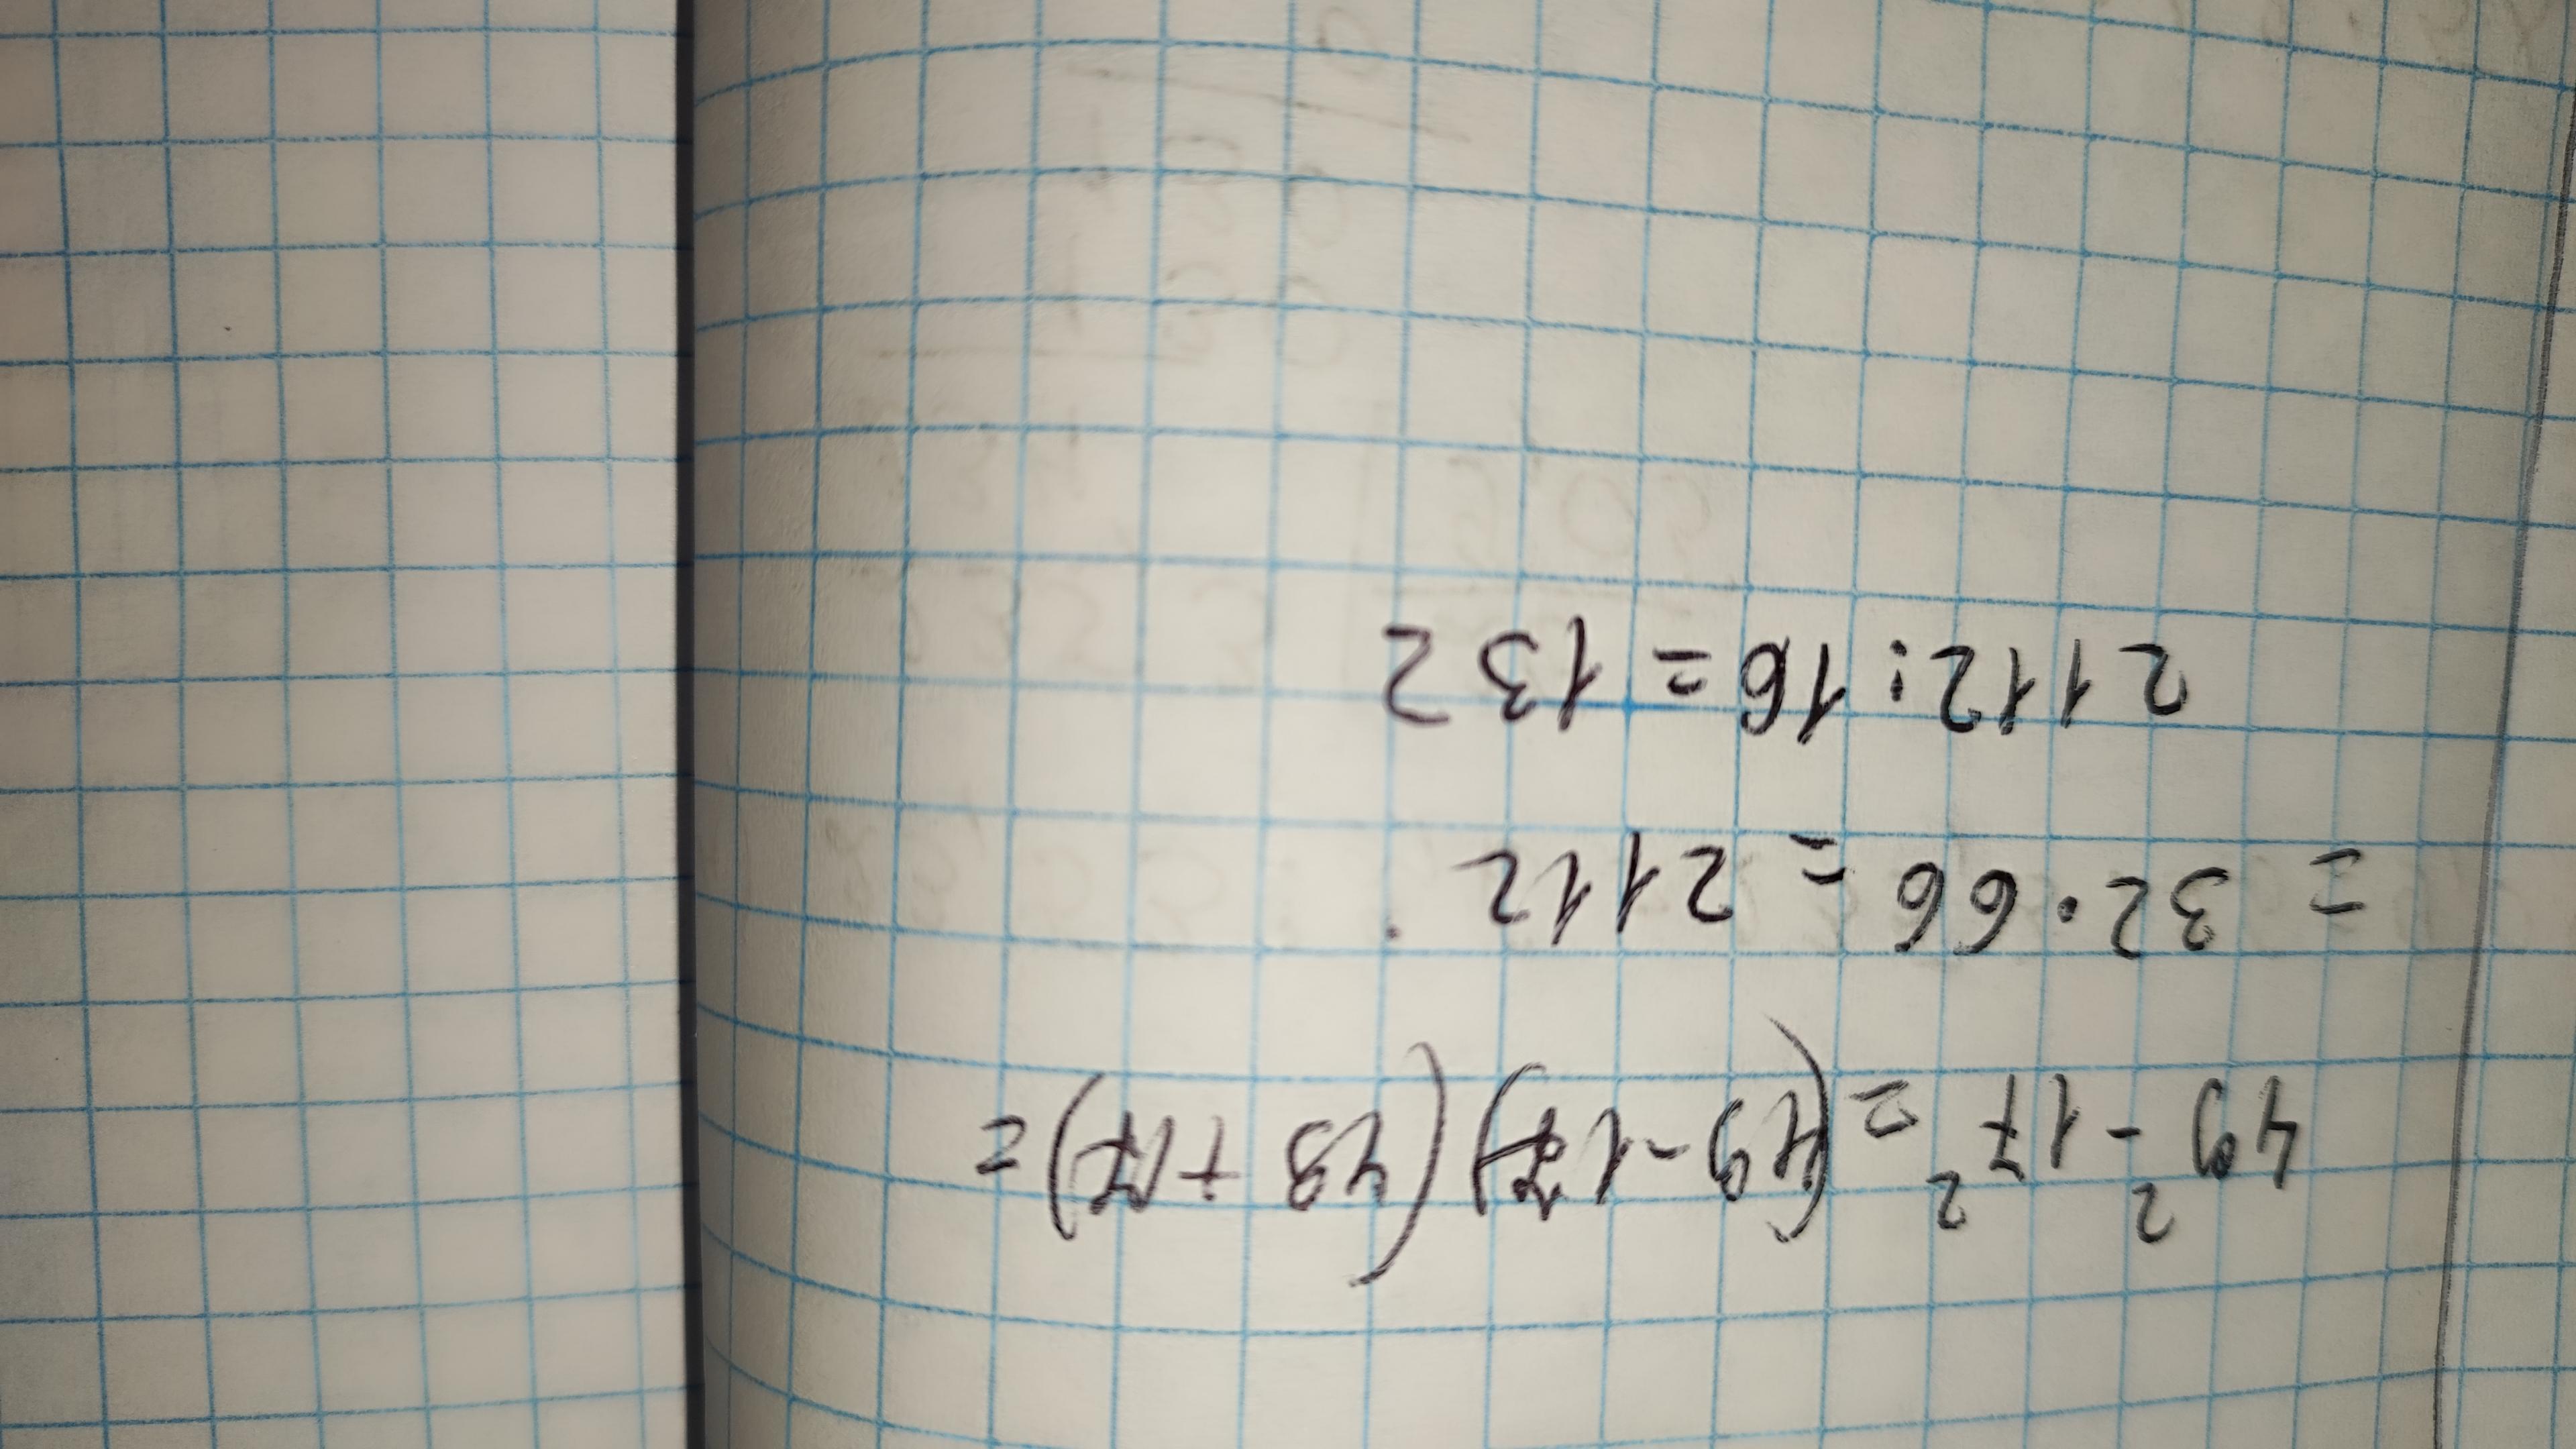 49² - 17² = (49-17) (49 + 17) =
= 32 · 66 = 2112
2112 : 16 = 132